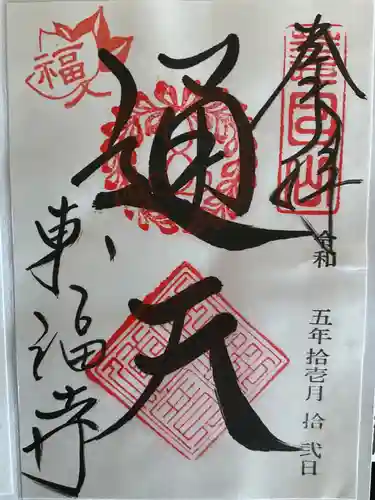 奉拝
令和 五年 拾壱月 拾弐日
通天
東福寺
福